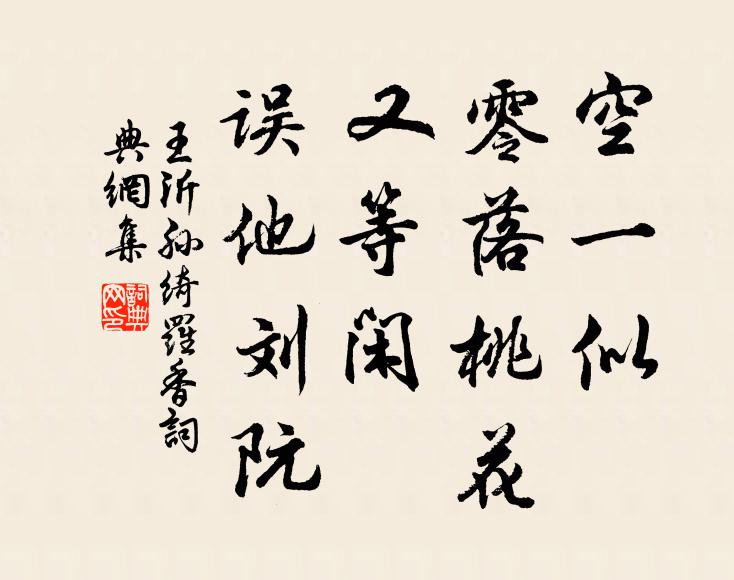 空一似
零落桃花
又等闲
误他刘阮
王沂孙绮羅香詞
典網集
詞典网印